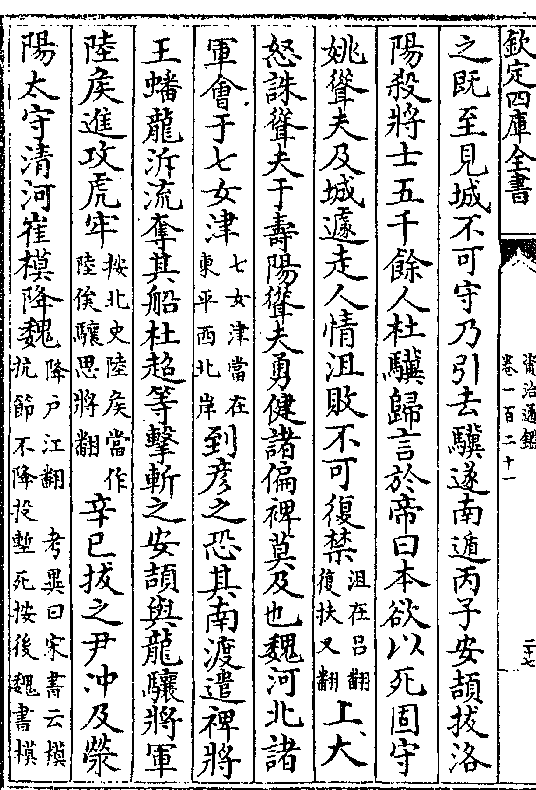 欽定四庫全書
資治通鑑
卷一百二十一
二十七
之既至見城不可守乃引去驥遂南遁丙子安頡拔洛
陽殺將士五千餘人杜驥歸言於帝曰本欲以死固守
姚聳夫及城遽走人情沮敗不可復禁沮在吕翻復扶又翻上大
怒誅聳夫于壽陽聳夫勇健諸偏裨莫及也魏河北諸
軍會于七女津七女津當在東平西北岸到彦之恐其南渡遣裨將
王蟠龍泝流奪其船杜超等擊斬之安頡與龍驤將軍
陸矦進攻虎牢按北史陸矦當作陸俟驤思將翻辛巳拔之尹冲及滎
陽太守清河崔模降魏降户江翻 考異曰宋書云模抗節不降投塹死按後魏書模